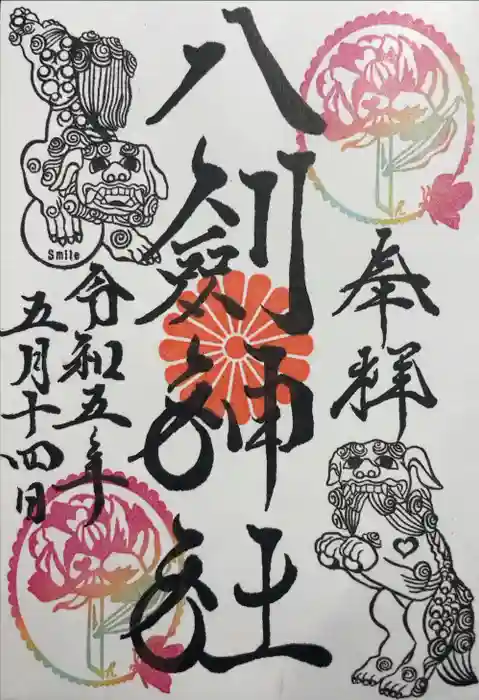 奉拝
八剱神社
令和五年
五月十四日
Smile